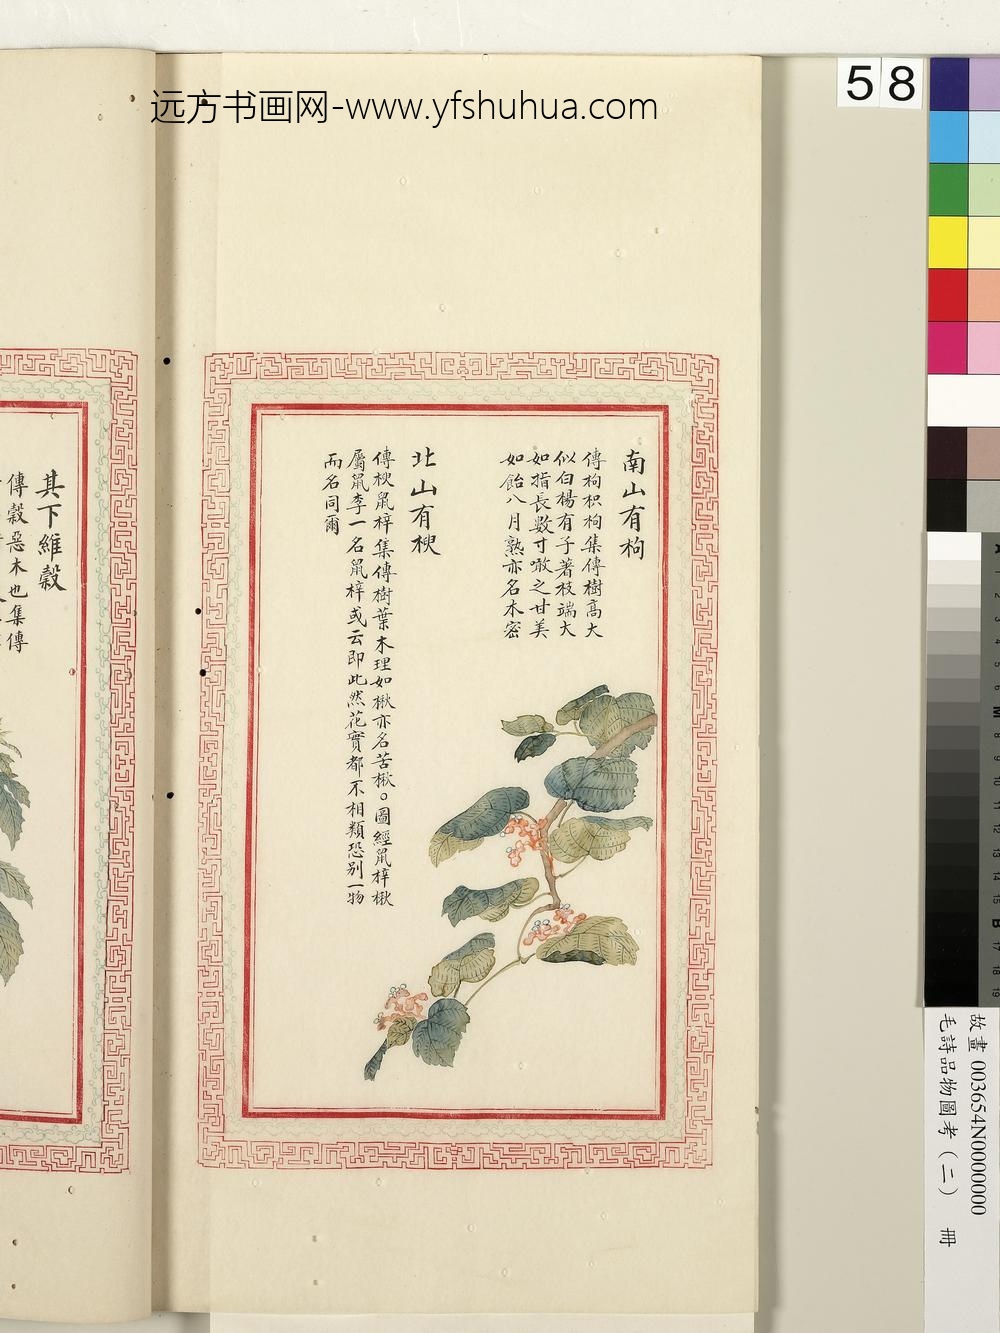 远方书画网-www.yfshuhua.com
58
南山有枸
傳枸枳枸集傳樹高大
似白楊有子著枝端大
如指長數寸噉之甘美
如飴八月熟亦名木密
北山有楰
傳楰鼠梓集傳樹葉木理如楸亦名苦楸。圖經鼠梓楸
屬鼠李一名鼠梓或云即此然花實都不相類恐別一物
而名同爾
其下維榖
傳榖惡木也集傳
故畫 003654N0000000
毛詩品物圖考（二） 冊